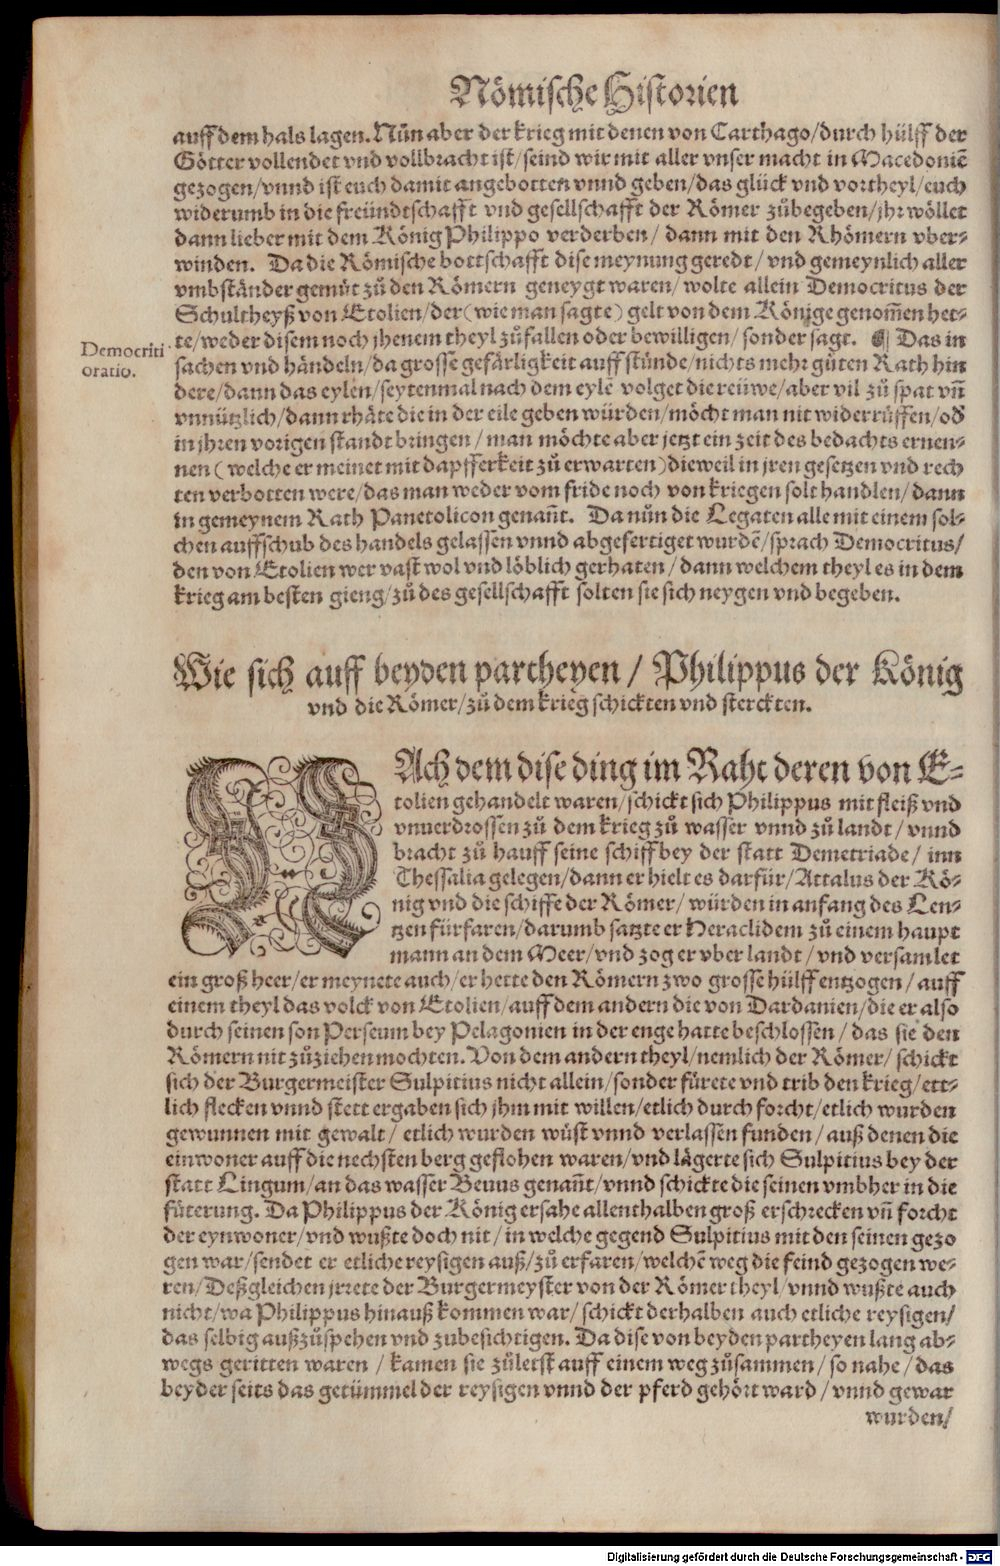 Römische Historien
auff dem hals lagen. Nůn aber der krieg mit denen von Carthago/durch hülff der
Götter vollendet vnd vollbracht ist/seind wir mit aller vnser macht in Macedoniẽ
gezogen/vnnd ist euch damit angebotten vnnd geben/das glück vnd vortheyl/euch
widerumb in die freündtschafft vnd gesellschafft der Römer zůbegeben/jhr wöllet
dann lieber mit dem König Philippo verderben/ dann mit den Rhömern vber-
winden. Da die Römische bottschafft dise meynung geredt/ vnd gemeynlich aller
vmbständer gemüt zů den Römern geneygt waren/ wolte allein Democritus der
Schultheyß von Etolien/der (wie man sagte) gelt von dem Könige genom̃en het-
te/weder disem noch jhenem theyl zůfallen oder bewilligen/ sonder sagt. ¶ Das in
Democriti
oratio.
sachen vnd händeln/da grosse gefärligkeit auff stünde/nichts mehr gůten Rath hin
dere/dann das eylen/seytenmal nach dem eylẽ volget die reüwe/aber vil zů spat vñ
vnnützlich/dann rhäte die in der eile geben würden/möcht man nit widerrůffen/oď
in jhren vorigen standt bringen / man möchte aber jetzt ein zeit des bedachts ernen-
nen (welche er meinet mit dapfferkeit zů erwarten) dieweil in jren gesetzen vnd rech
ten verbotten were/das man weder vom fride noch von kriegen solt handlen/ dann
in gemeynem Rath Panetolicon genañt. Da nůn die Legaten alle mit einem sol-
chen auffschub des handels gelassen vnnd abgefertiget wurdẽ/sprach Democritus/
den von Etolien wer vast wol vnd löblich gerhaten / dann welchem theyl es in dem
krieg am besten gieng/zů des gesellschafft solten sie sich neygen vnd begeben.
Wie sich auff beyden partheyen / Philippus der König
vnd die Römer/zů dem krieg schickten vnd sterckten.
NAch dem dise ding im Raht deren von E-
tolien gehandelt waren/schickt sich Philippus mit fleiß vnd
vnuerdrossen zů dem krieg zů wasser vnnd zů landt / vnnd
bracht zů hauff seine schiff bey der statt Demetriade/ inn
Thessalia gelegen/dann er hielt es darfür/Attalus der Kö-
nig vnd die schiffe der Römer/ würden in anfang des Len-
tzen fürfaren/darumb satzte er Heraclidem zů einem haupt
mann an dem Meer/vnd zog er vber landt / vnd versamlet
ein groß heer/er meynete auch/er hette den Römern zwo grosse hülff entzogen / auff
einem theyl das volck von Etolien/auff dem andern die von Dardanien/die er also
durch seinen son Perseum bey Pelagonien in der enge hatte beschlossen / das sie den
Römern nit zůziehen mochten. Von dem andern theyl/nemlich der Römer/ schickt
sich der Burgermeister Sulpitius nicht allein/sonder fürete vnd trib den krieg/ett-
lich flecken vnnd stett ergaben sich jhm mit willen/etlich durch forcht/etlich wurden
gewunnen mit gewalt / etlich wurden wüst vnnd verlassen funden / auß denen die
einwoner auff die nechsten berg geflohen waren/vnd lägerte sich Sulpitius bey der
statt Lingum/an das wasser Beuus genañt/vnnd schickte die seinen vmbher in die
fůterung. Da Philippus der König ersahe allenthalben groß erschrecken vñ forcht
der eynwoner/vnd wußte doch nit / in welche gegend Sulpitius mit den seinen gezo
gen war/sendet er etliche reysigen auß/zů erfaren/welchẽ weg die feind gezogen we-
ren/Deßgleichen jrrete der Burgermeyster von der Römer theyl/vnnd wußte auch
nicht/wa Philippus hinauß kommen war/ schickt derhalben auch etliche reysigen/
das selbig außzůspehen vnd zubesichtigen. Da dise von beyden partheyen lang ab-
wegs geritten waren / kamen sie zůletst auff einem weg zůsammen/ so nahe / das
beyder seits das getümmel der reysigen vnnd der pferd gehört ward / vnnd gewar
wurden/
Digitalisierung gefördert durch die Deutsche Forschungsgemeinschaft - DFG